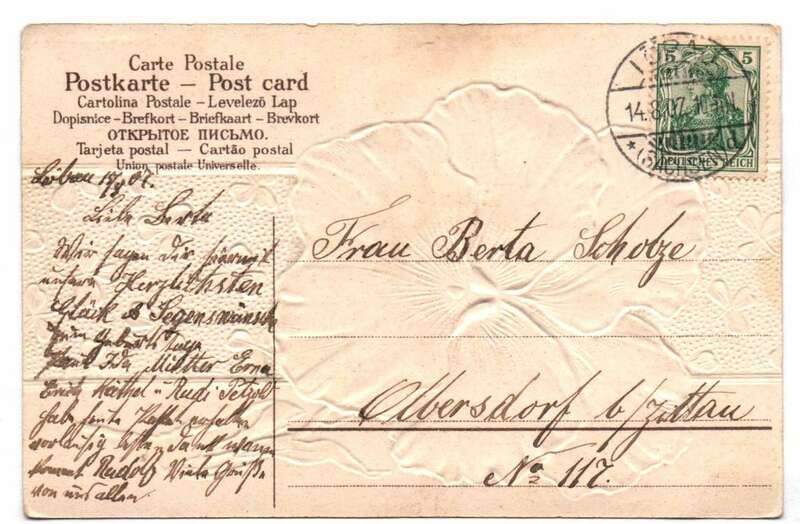 Carte Postale
Postkarte – Post card
Cartolina Postale – Levelező Lap
Dopisnice – Brefkort – Briefkaart – Brevkort
ОТКРЫТОЕ ПИСЬМО.
Tarjeta postal – Cartão postal
Union postale Universelle.
5 5
DEUTSCHES REICH
14.8.07.
Löbau 07.
Liebe Berta
Wir sagen dir hiermit
unsere Herzlichsten
Glück & Segenswünsche
zum Geburtstage
Ida Mutter Erna
Erich Käthel u Rudi Petzold
habe heute erhalten
Dank wann
kommt Rudolf Viele Grüße
von uns allen.
Frau Berta Scholze
Olbersdorf b/Zittau
No 117.